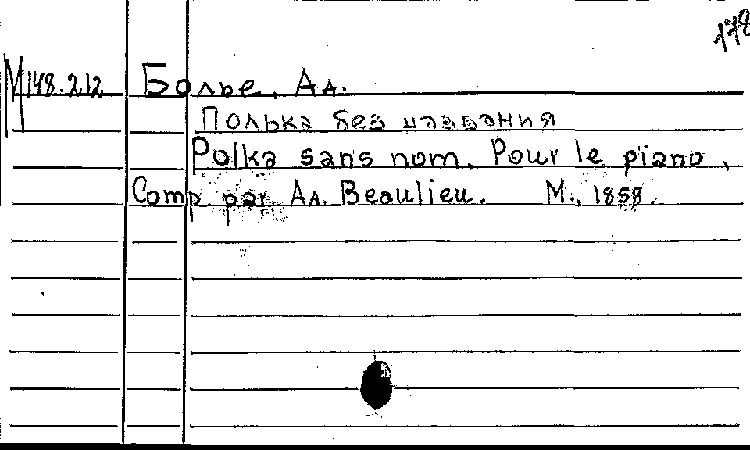 178
М 148.212 Болье, Ад.
Полька без названия
Polka sans nom. Pour le piano,
Comp par Ад. Beaulieu. М., 1858.